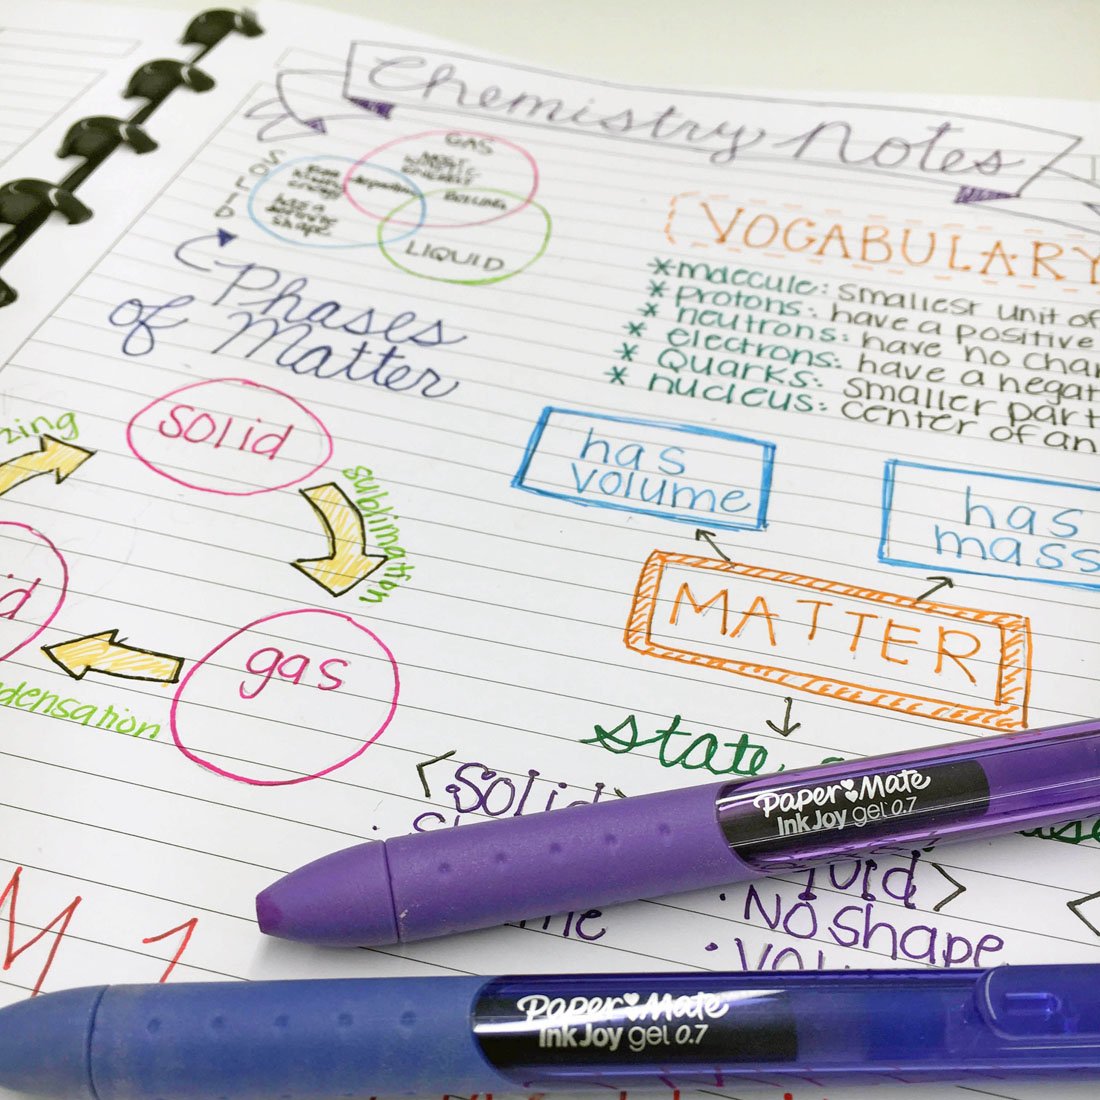 Chemistry Notes
GAS
MOST
KINETIC
ENERGY
SOLID
HAS A
DEFINITE
SHAPE
BOILING
LIQUID
Phases
of Matter
VOCABULARY
*molecule: smallest unit of
* protons: have a positive
* neutrons: have no char
* electrons: have a negat
* Quarks: smaller part
* nucleus: center of an
zing
solid
sublimation
gas
densation
has
volume
has
mass
MATTER
state
<Solid>
uid>
• NO Shape
me
Paper Mate
InkJoy gel 0.7
Paper Mate
InkJoy gel 0.7